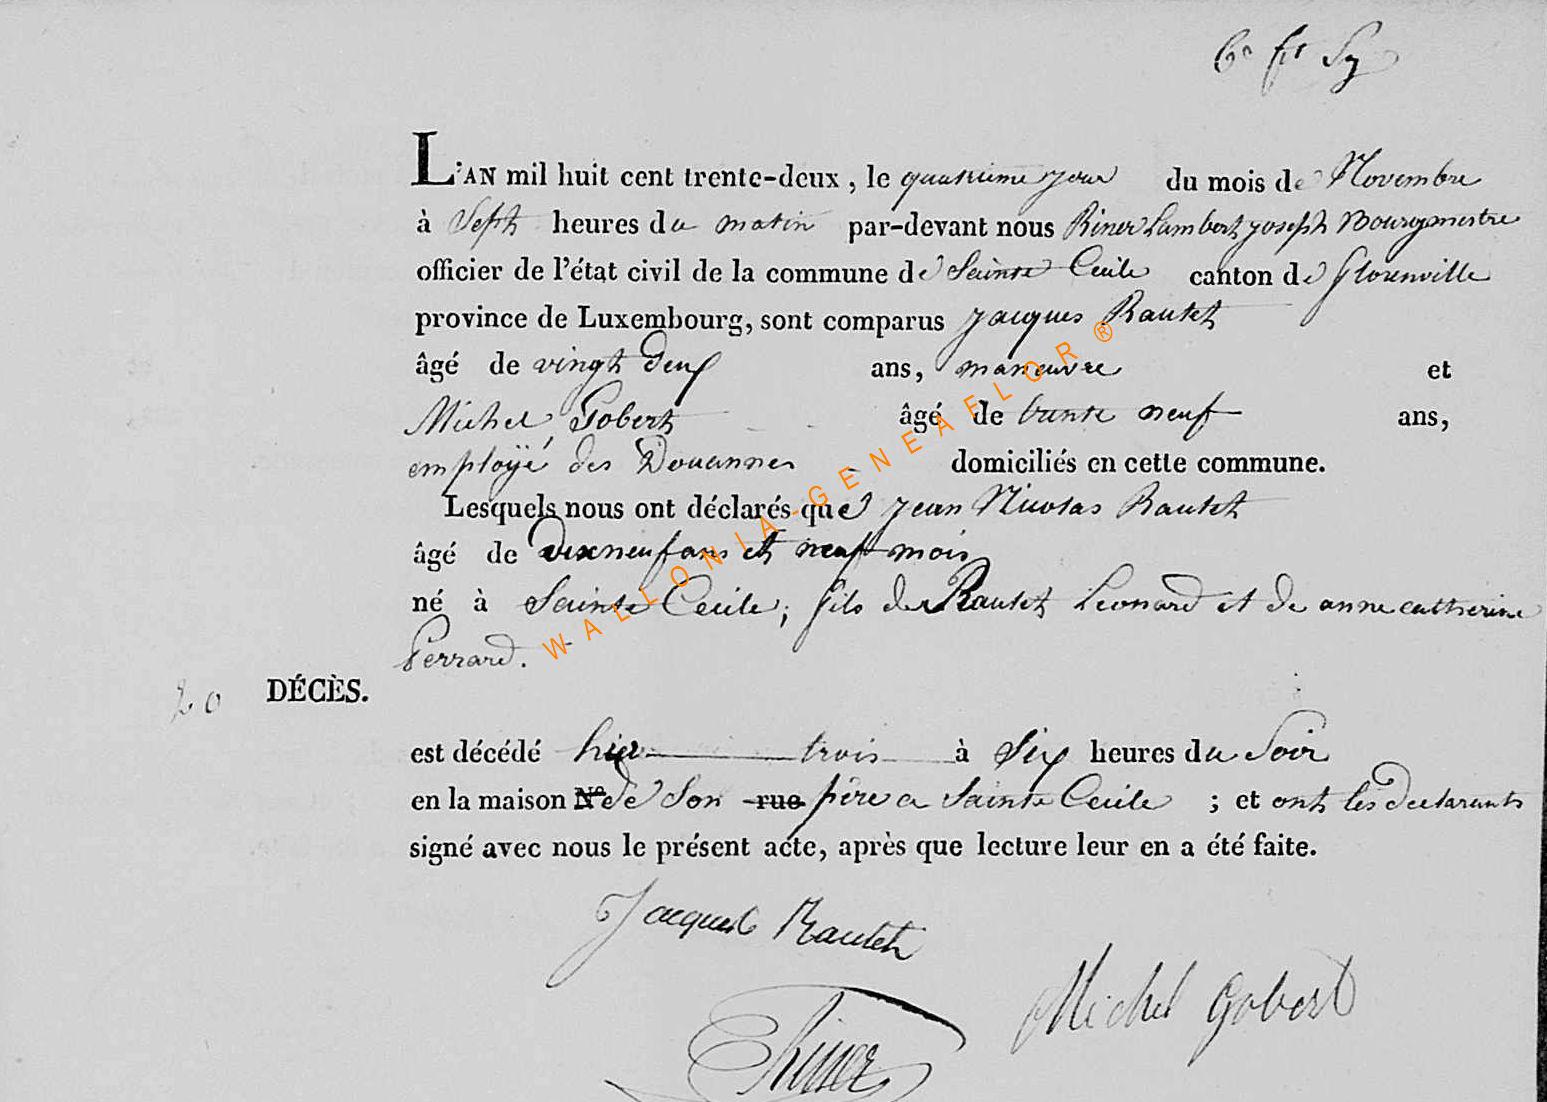 L'AN mil huit cent trente-deux, le quatrieme jour du mois de Novembre
à Sept heures du matin par-devant nous Riner Lambert joseph Bourgmestre
officier de l'état civil de la commune de Sainte Cecile canton de florenville
province de Luxembourg, sont comparus jacques Rautet
âgé de vingt deux ans, manœuvre et
Michel Gobert âgé de trente neuf ans,
employé des Douannes domiciliés en cette commune.
Lesquels nous ont déclarés que jean Nicolas Rautet
âgé de dixneuf ans et neuf mois
né à Sainte Cecile; fils de Rautet Leonard et de anne catherine
Perrard.
20 DÉCÈS.
est décédé hier trois à Six heures du Soir
en la maison N° de Son rue père a Sainte Cecile ; et ont les declarants
signé avec nous le présent acte, après que lecture leur en a été faite.
Jacques Rautet
Michel Gobert
WALLONIA-GENEAFLOR®